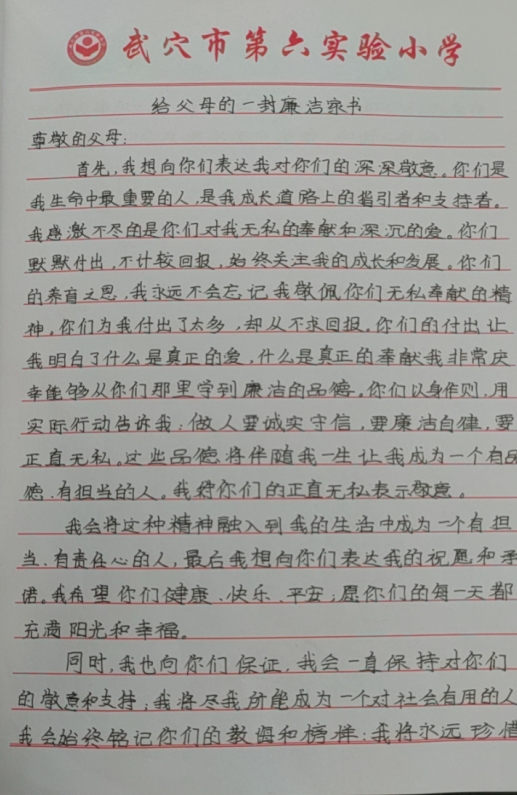 武穴市第六实验小学
给父母的一封廉洁家书
尊敬的父母:
首先,我想向你们表达我对你们的深深敬意。你们是
我生命中最重要的人,是我成长道路上的指引者和支持者。
我感激不尽的是你们对我无私的奉献和深沉的爱。你们
默默付出,不计较回报,始终关主我的成长和发展。你们
的养育之恩,我永远不会忘记我敬佩你们无私奉献的精
神。你们为我付出了太多,却从不求回报。你们的付出让
我明白了什么是真正的爱,什么是真正的奉献我非常庆
幸能够从你们那里学到廉洁的品德。你们以身作则,用
实际行动告诉我:做人要诚实守信,要廉洁自律,要
正直无私。这些品德将伴随我一生让我成为一个有品
德、有担当的人。我将你们的正直无私表示敬意。
我会将这种精神融入到我的生活中成为一个有担
当、有责任心的人,最后我想向你们表达我的祝愿和承
诺。我希望你们健康、快乐、平安;愿你们的每一天都
充满阳光和幸福。
同时,我也向你们保证,我会一直保持对你们
的敬意和支持;我将尽我所能成为一个对社会有用的人
我会始终铭记你们的教诲和榜样;我将永远珍惜